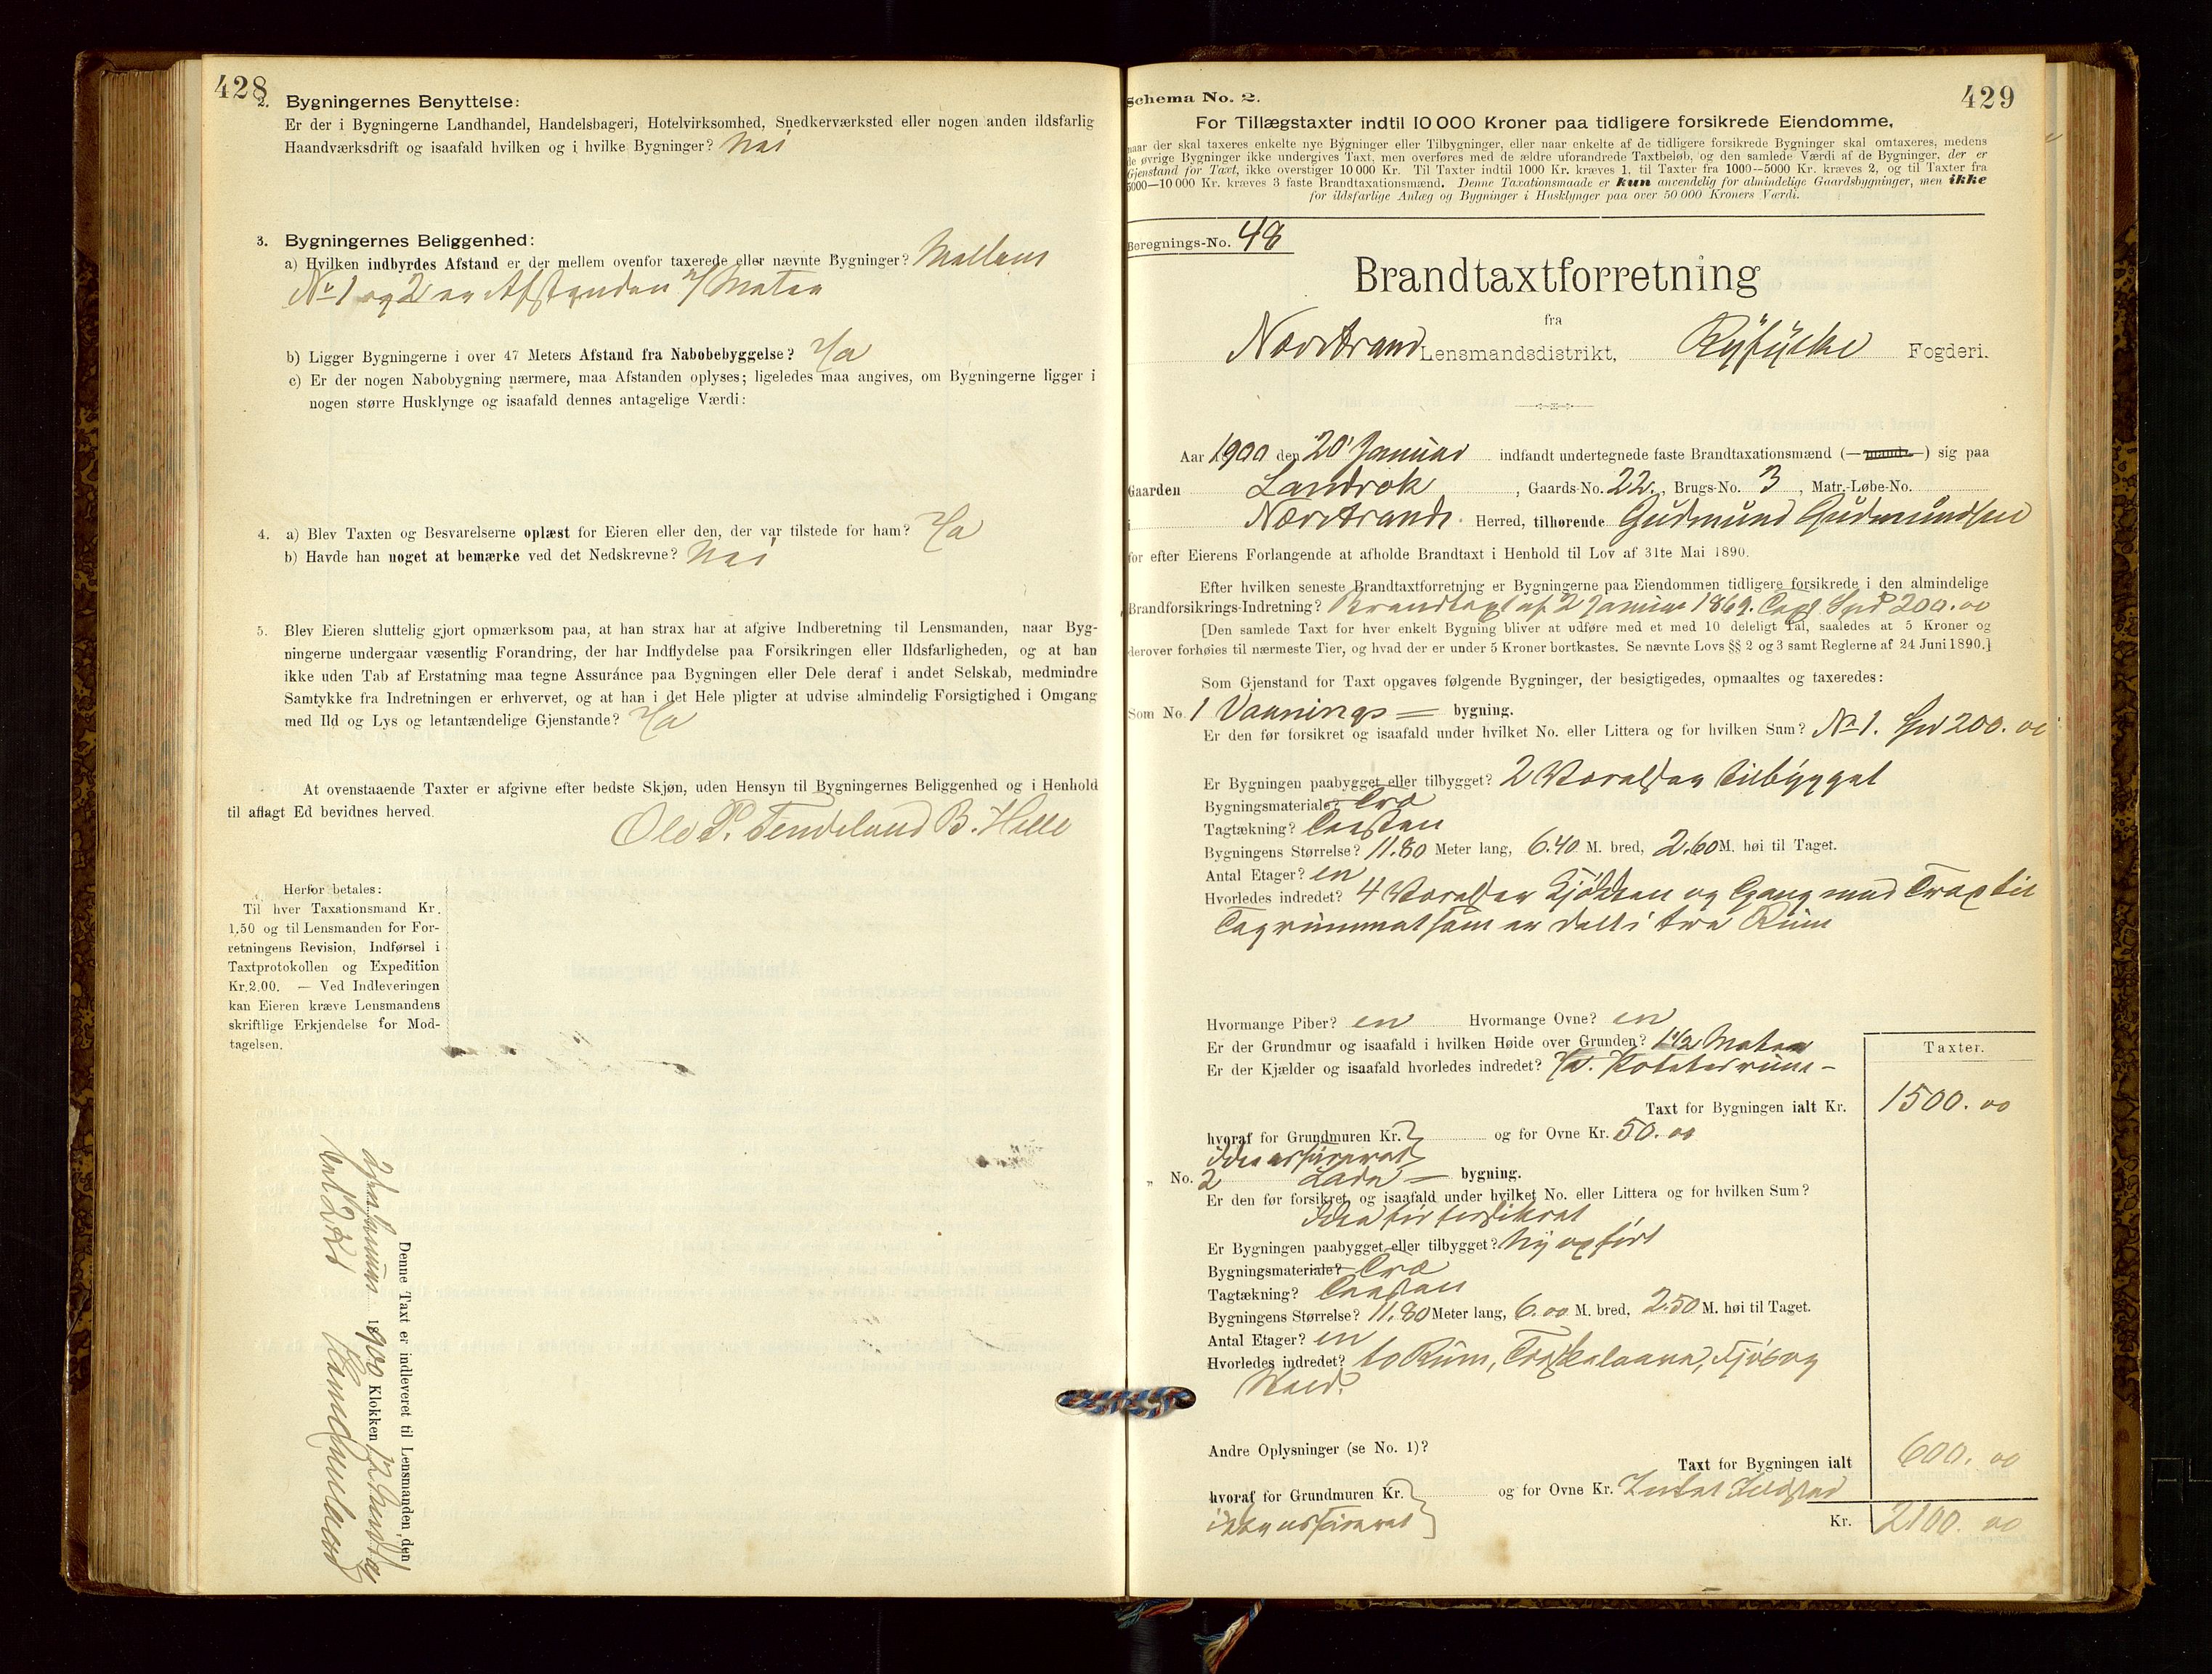 428
2. Bygningernes Benyttelse:
Er der i Bygningerne Landhandel, Handelsbageri, Hotelvirksomhed, Snedkerværksted eller nogen anden ildsfarlig
Haandværksdrift og isaafald hvilken og i hvilke Bygninger? Nei
3. Bygningernes Beliggenhed:
a) Hvilken indbyrdes Afstand er der mellem ovenfor taxerede eller nævnte Bygninger? Mellem
No 1 og 2 er Afstanden Meter
b) Ligger Bygningerne i over 47 Meters Afstand fra Nabobebyggelse? Ja
c) Er der nogen Nabobygning nærmere, maa Afstanden oplyses; ligeledes maa angives, om Bygningerne ligger i
nogen større Husklynge og isaafald dennes antagelige Værdi:
4. a) Blev Taxten og Besvarelserne oplæst for Eieren eller den, der var tilstede for ham? Ja
b) Havde han noget at bemærke ved det Nedskrevne? Nei
5. Blev Eieren sluttelig gjort opmærksom paa, at han strax har at afgive Indberetning til Lensmanden, naar Byg-
ningerne undergaar væsentlig Forandring, der har Indflydelse paa Forsikringen eller Ildsfarligheden, og at han
ikke uden Tab af Erstatning maa tegne Assurance paa Bygningen eller Dele deraf i andet Selskab, medmindre
Samtykke fra Indretningen er erhvervet, og at han i det Hele pligter at udvise almindelig Forsigtighed i Omgang
med Ild og Lys og letantændelige Gjenstande? Ja
At ovenstaaende Taxter er afgivne efter bedste Skjøn, uden Hensyn til Bygningernes Beliggenhed og i Henhold
til aflagt Ed bevidnes herved.
Ole P. Tendeland B. Helle
Herfor betales:
Til hver Taxationsmand Kr.
1,50 og til Lensmanden for For-
retningens Revision, Indførsel i
Taxtprotokollen og Expedition
Kr. 2.00. — Ved Indleveringen
kan Eieren kræve Lensmandens
skriftlige Erkjendelse for Mod-
tagelsen.
Denne Taxt er indleveret til Lensmanden, den
Januar 1900 Klokken 12 Middag
429
Schema No. 2.
For Tillægstaxter indtil 10 000 Kroner paa tidligere forsikrede Eiendomme,
naar der skal taxeres enkelte nye Bygninger eller Tilbygninger, eller naar enkelte af de tidligere forsikrede Bygninger skal omtaxeres, medens
de øvrige Bygninger ikke undergives Taxt, men overføres med de ældre uforandrede Taxtbeløb, og den samlede Værdi af de Bygninger, der er
Gjenstand for Taxt, ikke overstiger 10 000 Kr. Til Taxter indtil 1000 Kr. kræves 1, til Taxter fra 1000—5000 Kr. kræves 2, og til Taxter fra
5000—10 000 Kr. kræves 3 faste Brandtaxationsmænd. Denne Taxationsmaade er kun anvendelig for almindelige Gaardsbygninger, men ikke
for ildsfarlige Anlæg og Bygninger i Husklynger paa over 50 000 Kroners Værdi.
Beregnings-No. 48
Brandtaxtforretning
fra
Nærstrand Lensmandsdistrikt, Ryfylke Fogderi.
Aar 1900 den 20 Januar indfandt undertegnede faste Brandtaxationsmænd (— mand —) sig paa
Gaarden Landrok, Gaards-No. 22., Brugs-No. 3, Matr.-Løbe-No.
i Nærstrands Herred, tilhørende Gudmund Gudmundsen
for efter Eierens Forlangende at afholde Brandtaxt i Henhold til Lov af 31te Mai 1890.
Efter hvilken seneste Brandtaxtforretning er Bygningerne paa Eiendommen tidligere forsikrede i den almindelige
Brandforsikrings-Indretning? Brandtaxt af 2 Januar 1869. Spd 200.00
[Den samlede Taxt for hver enkelt Bygning bliver at udføre med et med 10 deleligt Tal, saaledes at 5 Kroner og
derover forhøies til nærmeste Tier, og hvad der er under 5 Kroner bortkastes. Se nævnte Lovs §§ 2 og 3 samt Reglerne af 24 Juni 1890.]
Som Gjenstand for Taxt opgaves følgende Bygninger, der besigtigedes, opmaaltes og taxeredes:
Som No. 1 Vaanings — bygning.
Er den før forsikret og isaafald under hvilket No. eller Littera og for hvilken Sum? No 1. Spd 200.00
Er Bygningen paabygget eller tilbygget? 2 Værelser tilbygget
Bygningsmateriale? Træ
Tagtækning? Tagsten
Bygningens Størrelse? 11.80 Meter lang, 6.40 M. bred, 2.60 M. høi til Taget.
Antal Etager? en
Hvorledes indredet? 4 Værelser Kjøkken og Gang med Trap til
Tagrummet som er delt i tre Rum
Hvormange Piber? en Hvormange Ovne? en
Er der Grundmur og isaafald i hvilken Høide over Grunden? 1 1/2 Meter
Er der Kjælder og isaafald hvorledes indredet? Ja. Potetesrum —
Taxter.
Taxt for Bygningen ialt Kr. 1500.00
hvoraf for Grundmuren Kr. og for Ovne Kr. 50.00
ikke assureret
„ No. 2 Lade — bygning.
Er den før forsikret og isaafald under hvilket No. eller Littera og for hvilken Sum?
ikke før forsikret
Er Bygningen paabygget eller tilbygget? Ny opført
Bygningsmateriale? Træ
Tagtækning? Tagsten
Bygningens Størrelse? 11.80 Meter lang, 6.00 M. bred, 2.50 M. høi til Taget.
Antal Etager? en
Hvorledes indredet? to Rum, Træskelaave, Fjøs og
Andre Oplysninger (se No. 1)?
Taxt for Bygningen ialt 600.00
hvoraf for Grundmuren Kr. og for Ovne Kr. Intet Ildsted
ikke assureret
Kr. 2100.00